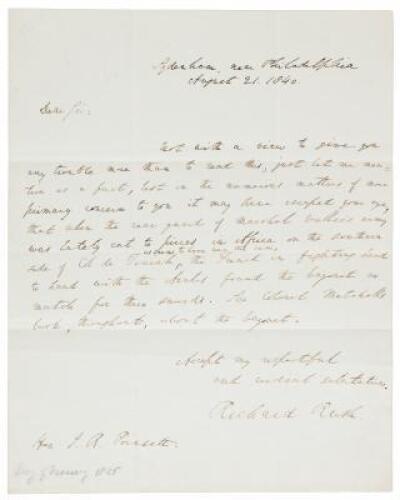 Sydenham, near Philadelphia
August 21. 1840.
Dear Sir,
Not with a view to give you
any trouble more than to read this, just let me men-
tion as a fact, lest in the numerous matters of more
primary concern to you it may have escaped your eye,
that when the rear guard of marshal army
was lately cut to pieces in Africa on the southern
side of Col de the French in fighting hand
to hand with the Arabs found the bayonet no
match for their swords. See Colonel
book, throughout, about the bayonet.
Accept my respectful
and cordial salutations,
Richard Rush.
Hon J. R. Poinsett.